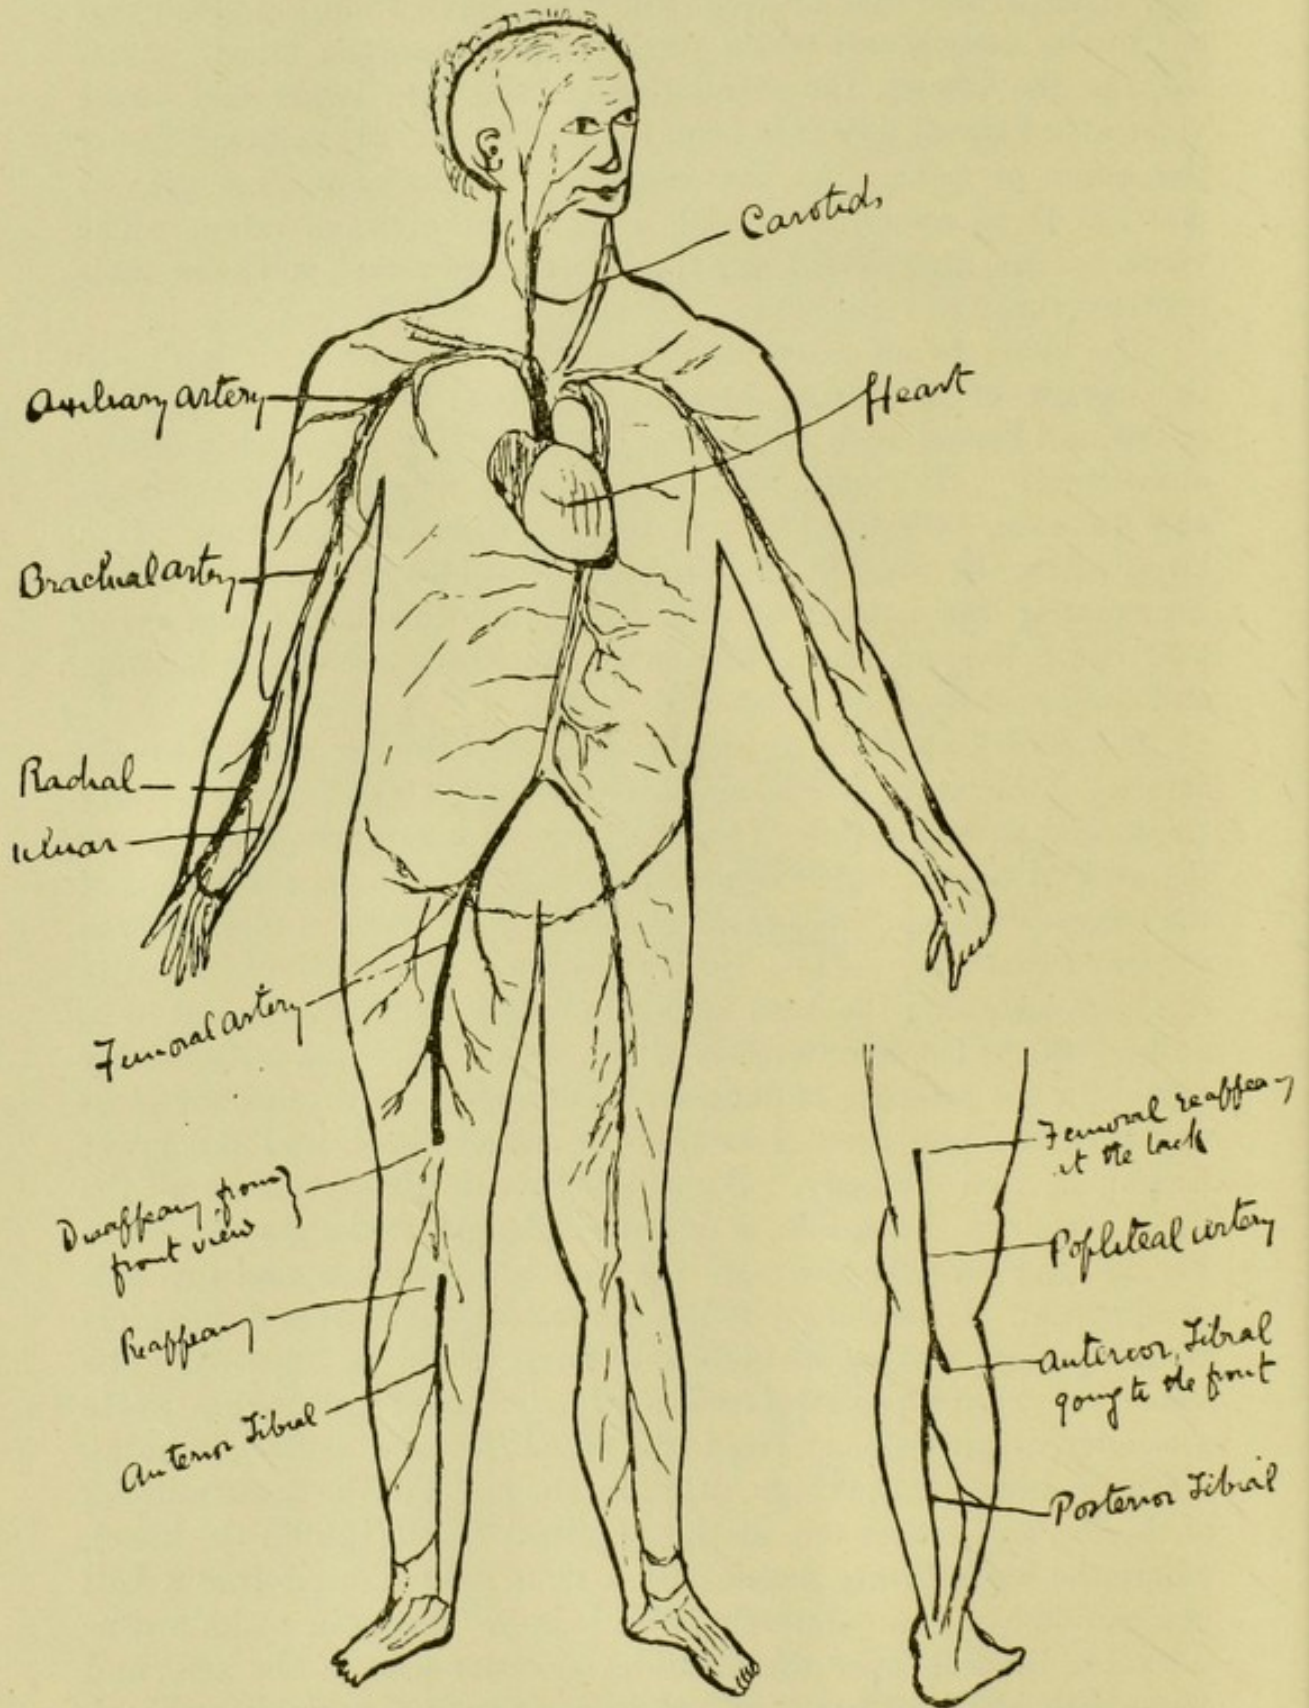 Carotids
Axiliary artery
Heart
Brachial artery
Radial
Ulnar
Femoral artery
Disappearg from
front view
Reappearg
Anterior Tibial
Femoral reappearg
at the back
Popliteal artery
Anterior Tibial
going to the front
Posterior Tibial